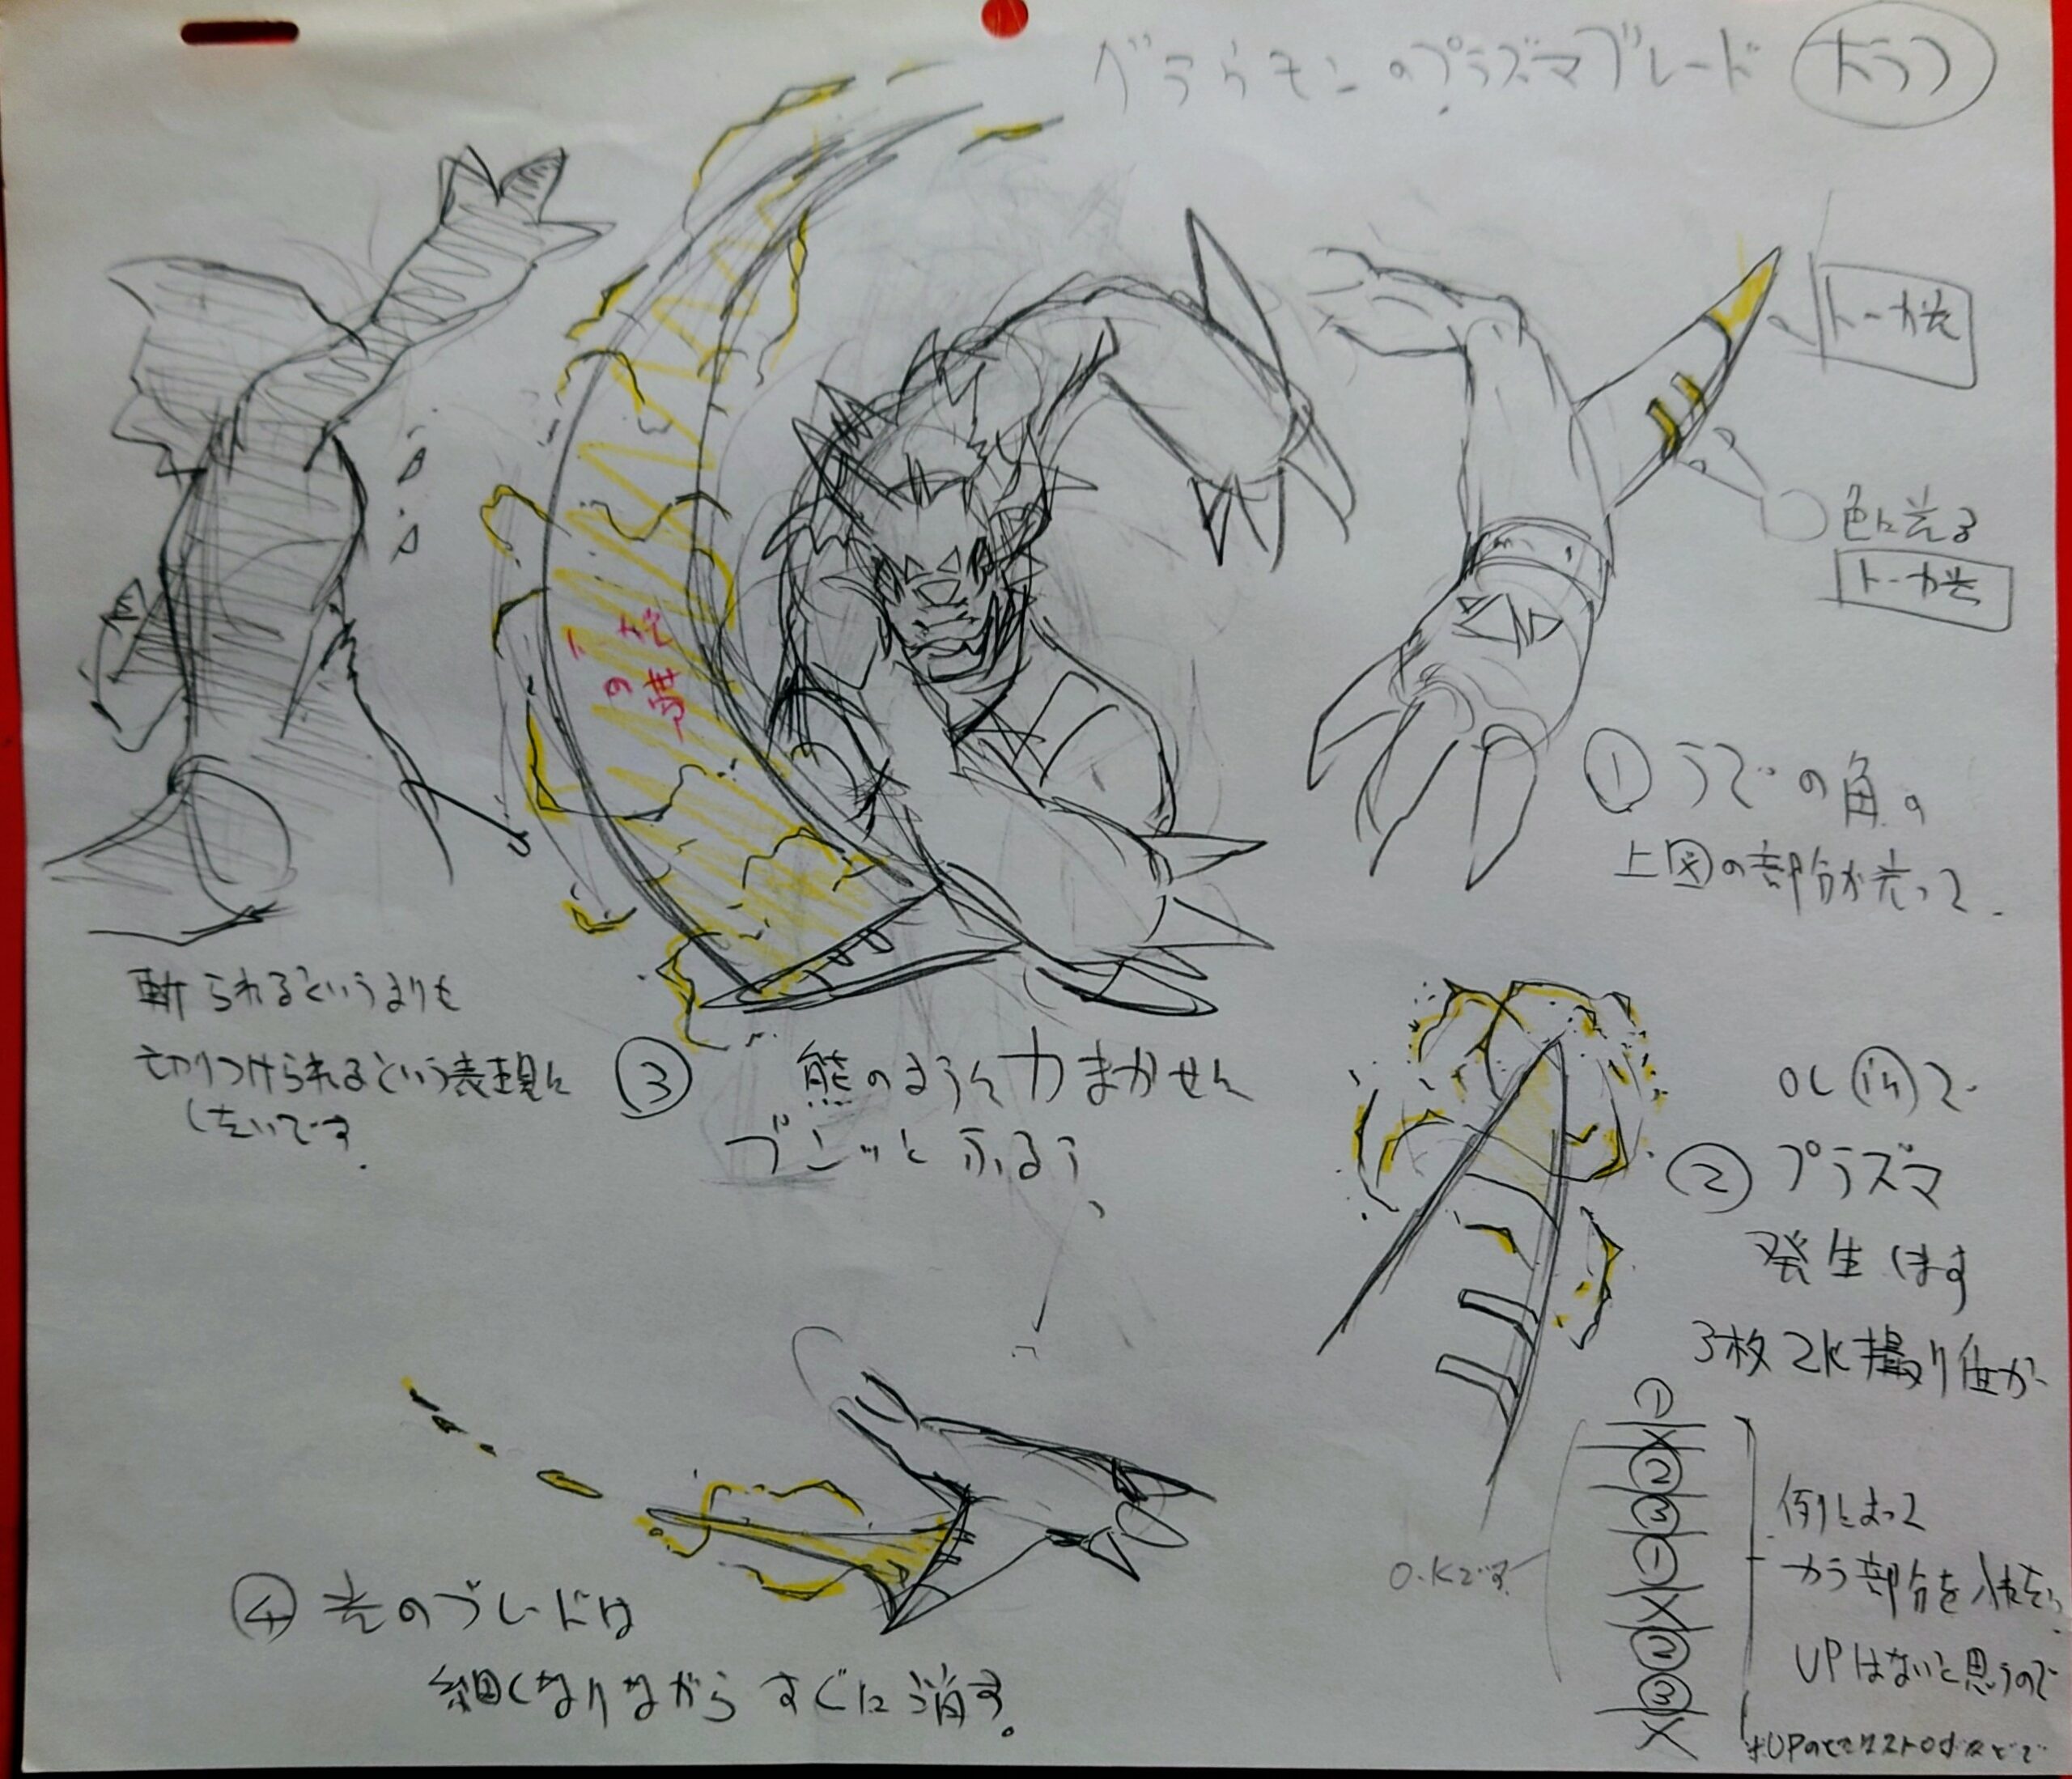 ゲラケモンのプラズマブレード ラフ
トーカ光
色に光る
トーカ光
①うでの角の
上図の部分が光って、
光
の帯
斬られるというよりも
切りつけられるという表現に
したいです。
③熊のように力まかせに
ブンッとふるう、
OL inで
②プラズマ
発生します
3枚2K撮り位か
①
×
②
③
①
×
②
③
×
O.Kです
例によって
カラ部分を入れたい
UPはないと思うので
④光のブレードは
細くなりながらすぐに消す。